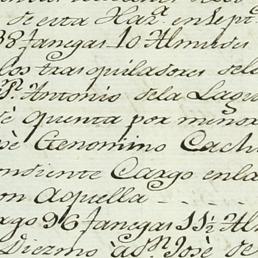 de esta Haz.ª en sept
38 fanegas 10 Almudes
los trasquiladores de la
Sr. Antonio de la Lagu
è quenta por menor
sè Geronimo Cach
ondiente Cargo en la
on aquella - - - -
argo 96 fanegas 11½ Al
Diezmo à dn. Josè de